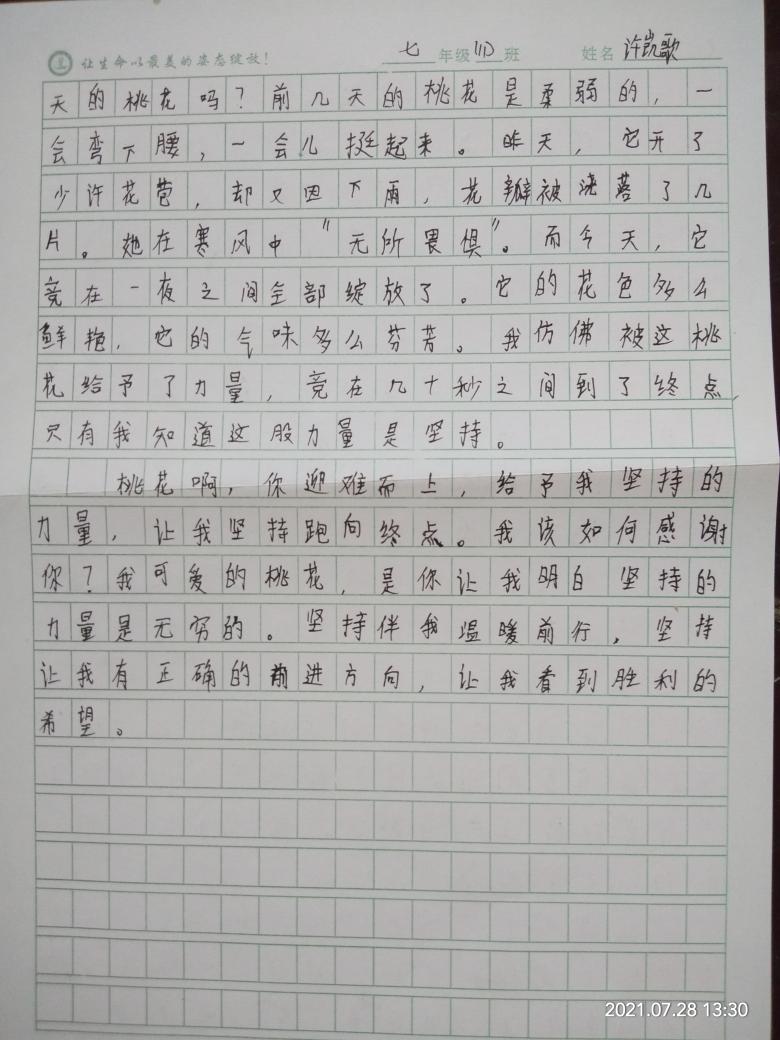 让生命以最美的姿态绽放! 七年级(1)班 姓名许凯歌
天的桃花吗?前几天的桃花是柔弱的,一
会弯下腰,一会儿挺起来。昨天,它开了
少许花苞,却又因下雨,花瓣被浇落了几
片。她在寒风中"无所畏惧"。而今天,它
竞在一夜之间全部绽放了。它的花色多么
鲜艳,它的气味多么芬芳。我仿佛被这桃
花给予了力量,竞在几十秒之间到了终点,
只有我知道这股力量是坚持。
桃花啊,你迎难而上,给予我坚持的
力量,让我坚持跑向终点。我该如何感谢
你?我可爱的桃花,是你让我明白坚持的
力量是无穷的。坚持伴我温暖前行,坚持
让我有正确的前进方向,让我看到胜利的
希望。
2021.07.28 13:30